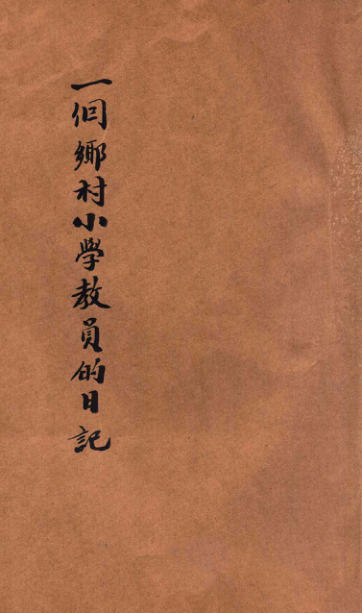 一個鄉村小學教員的日記